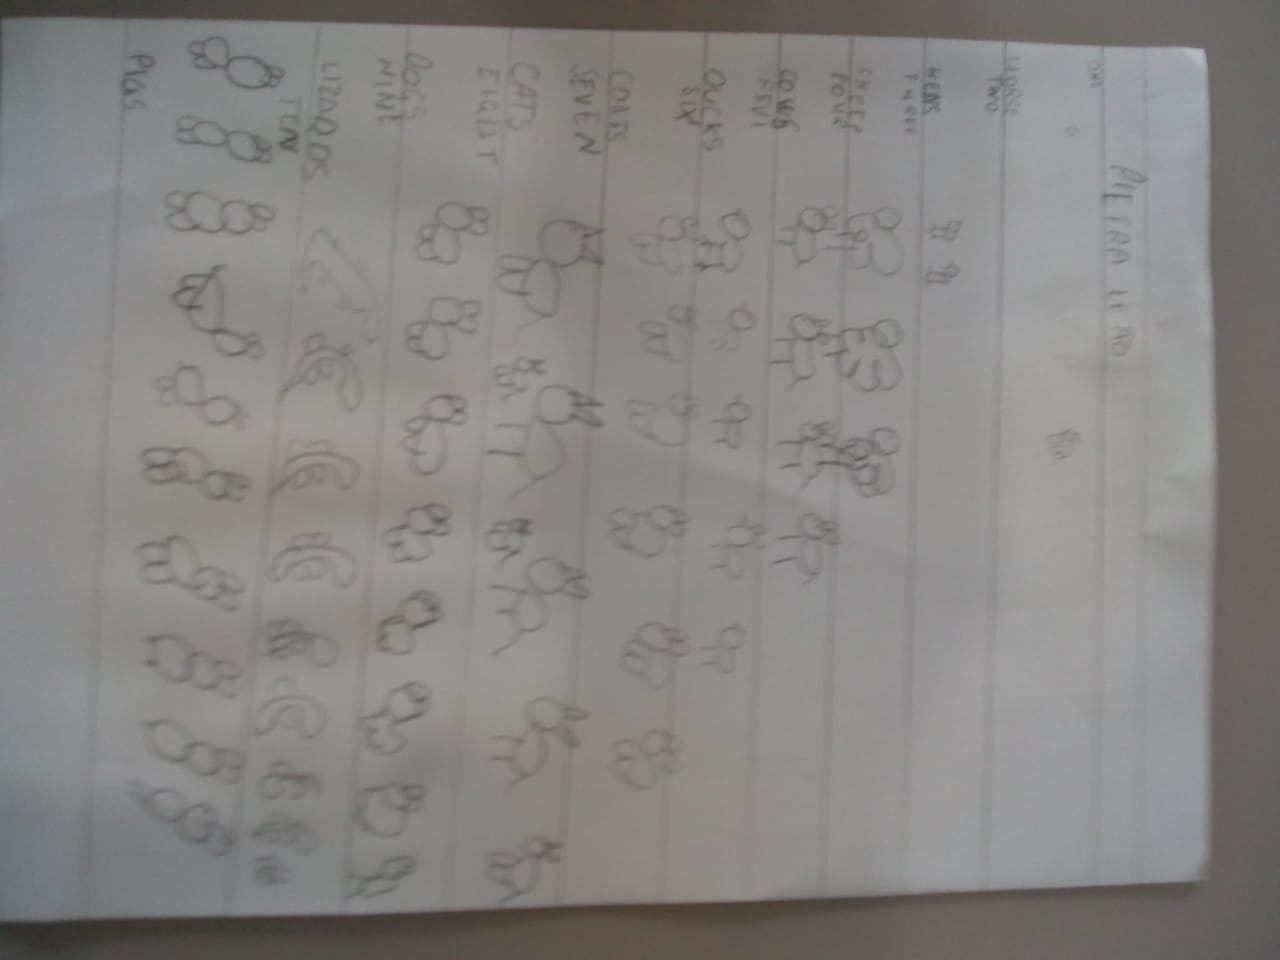 ONE
HORSE
TWO
HENS
THREE
SHEEP
FOUR
COWS
FEVI
DUCKS
SIX
GOATS
SEVEN
CATS
EIGHT
DOGS
NINE
LIZARDS
TEN
PIGS